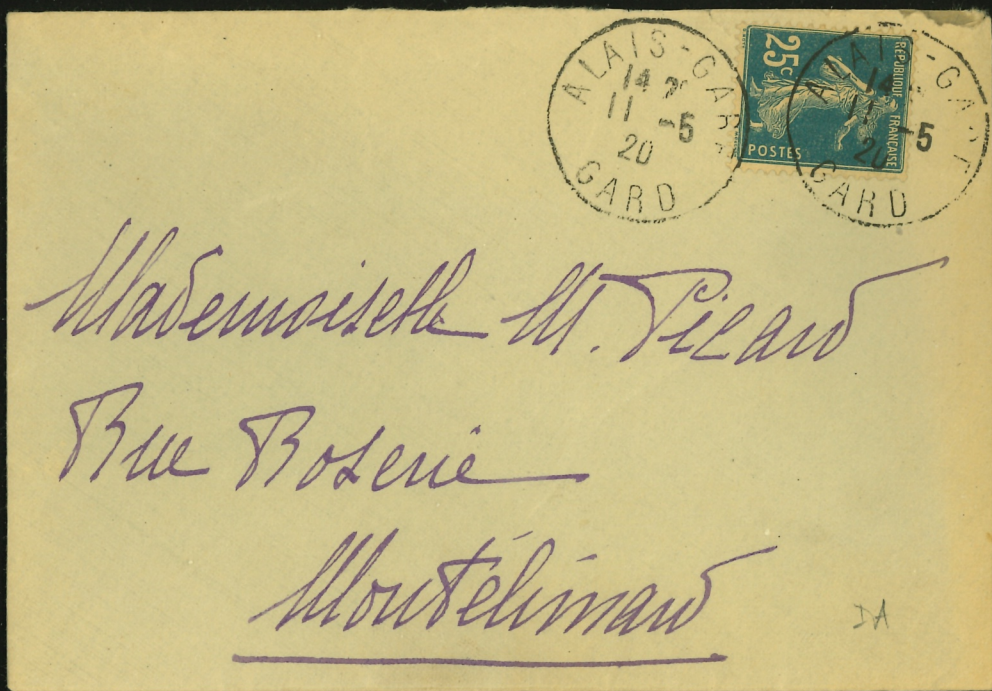 ALAIS-GARE
14
11 -5
20
GARD
25c
REPUBLIQUE FRANCAISE
POSTES
ALAIS-GARE
14
11 -5
20
GARD
Mademoiselle M. Picard
Rue Boserie
Montélimard
DA